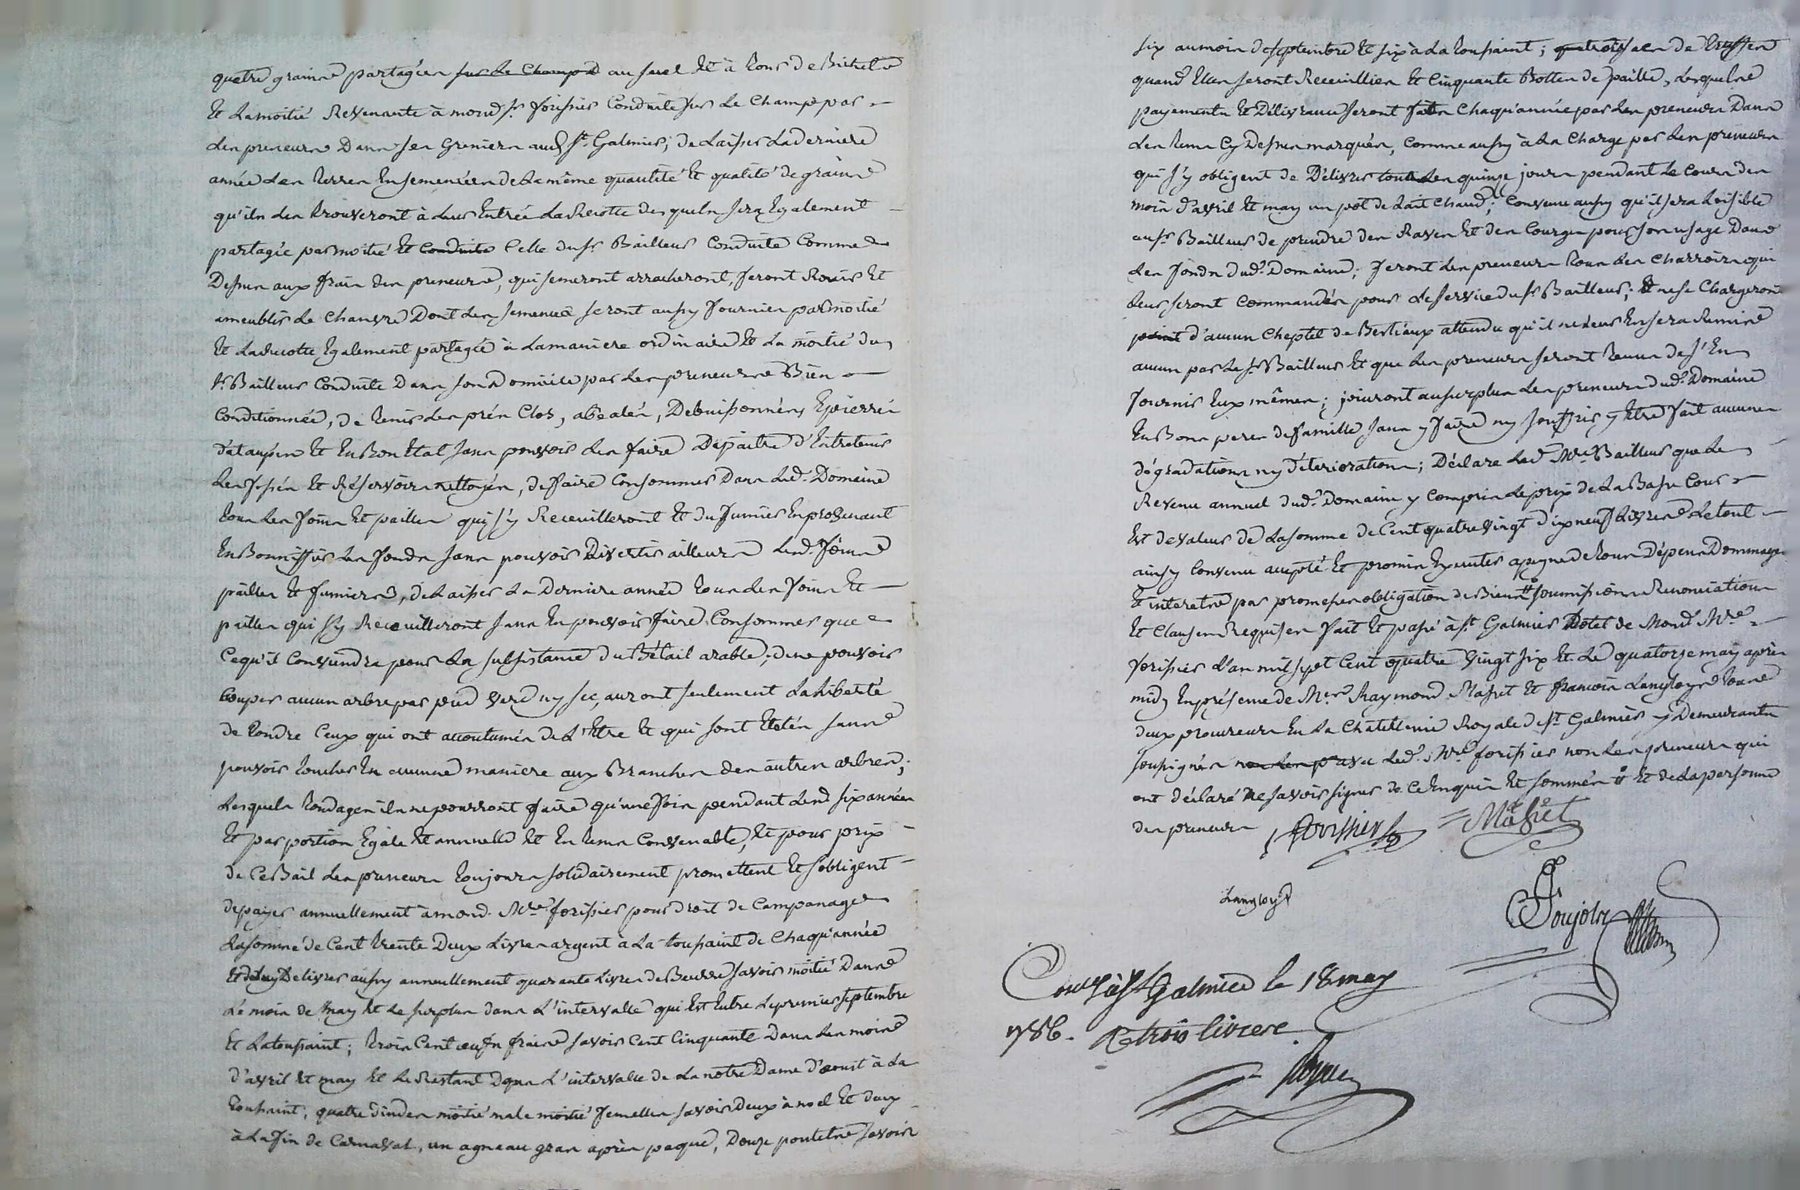 quatre graines partagées sur le champ au suel et à tous de Bichets
et la moitié Revenante à mond. sr. forissier Conduite sur le champ par
les preneurs Dans ses Greniers aud. st. Galmier; de Laisser La derniere
année Les terres Ensemencées de La même quantité et qualité de graine
qu'ils les trouveront à Leur Entrée La Recolte desquels sera Egalement
partagée par moitié et Conduite Celle du sr. Bailleur Conduite Comme
Dessus aux frais des preneurs, qui semeront arracheront, feront Rouir et
ameublir Le Chanvre Dont Les semences seront aussy fournies par moitié
et La Recolte Egalement partagée à La maniere ordinaire et La moitié du
sr. Bailleur Conduite Dans son Domicile par Les preneurs Bien
Conditionnée, de tenir Les prés Clos, Debuissonnés, Epierrés
détaupés et En Bon Etat sans pouvoir Les faire Dépaitre d'Entretenir
Les fossés et Réservoirs nettoyés, de faire Consommer Dans Led. Domaine
tous Les foins et pailles qui s'y Receuilleront et du fumier En provenant
En Bonniffier Les fonds sans pouvoir Divertir ailleurs Lesd. foins
pailles et fumiers, de Laisser La Derniere année tous Les foins et
pailles qui s'y Receuilleront sans En pouvoir faire Consommer que
Ce qu'il Conviendra pour La subsistance du Bétail arable; de ne pouvoir
Couper aucun arbre par pied verd ny sec, auront seulement La Liberté
de tondre Ceux qui ont accoutumés de L'Etre et qui sont Etetés sans
pouvoir toucher En aucune maniere aux Branches des autres arbres;
Lesquels tondages ils ne pourront faire qu'une fois pendant Lesd. six années
et par portion Egale et annuelle et En tems Convenable; et pour prix
de Ce Bail Les preneurs toujours solidairement promettent et s'obligent
de payer annuellement à mond. Mre. forissier pour droit de Campanage
La somme de Cent trente Deux Livres argent à La toussaint de Chaqu'année
Delivrer aussy annuellement quarante Livres de Beurre savoir moitié Dans
Le mois de May et Le surplus dans L'intervalle qui Est Entre Le premier septembre
et La toussaint; trois Cent œufs frais savoir Cent Cinquante Dans Les mois
d'avril et may et Le Restant Dans L'intervalle de La notre Dame d'aoust à La
toussaint; quatre dindes moitié male moitié femelles savoir deux à noel et deux
à La fin de Carnaval, un agneau gras après paque, Douze poulets savoir
six au mois de septembre et six à La toussaint; de truffes
quand Elles seront Receuillies et Cinquante Bottes de paille, Lesquels
payements et Délivrances seront faits Chaqu'année par Les preneurs Dans
Les tems Cy Dessus marqués, Comme aussy à La Charge par Les preneurs
qui s'y obligent de Délivrer tous Les quinze jours pendant Le Cours des
mois d'avril et may un pot de Lait Chaud; Convenu aussy qu'il sera Loisible
au sr. Bailleur de prendre des Raves et des Courges pour son usage Dans
Les fonds dud. Domaine; feront Les preneurs tous Les Charroirs qui
Leur seront Commandés pour Le service du sr. Bailleur; et ne se Chargeront
point d'aucun Cheptel de Bestiaux attendu qu'il ne Leur En sera Remis
aucun par Le sr. Bailleur et que Les preneurs seront tenus de s'En
fournir Eux mêmes; jouiront au surplus Les preneurs dud. Domaine
En Bons peres de famille sans y faire ny souffrir y Etre fait aucunes
dégradations ny déteriorations; Déclare Led. Mre. Bailleur que Le
Revenu annuel dud. Domaine y Compris Le prix de La Basse Cour
Est de valeur de La somme de Cent quatre vingt dix neuf Livres Le tout
ainsy Convenu accepté et promis Executer a peyne de tous Dépens Dommages
et interets par promesses obligation de Biens soumissions Renonciations
et Clauses Requises fait et passé à st. Galmier Hotel de Mond. Mre.
forissier L'an mil sept Cent quatre vingt six et Le quatorze may après
midy En présence de Mes. Raymond Masset et françois Langloys tous
deux procureurs En La Châtelenie Royale de st. Galmier y Demeurants
soussignés avec Led. Mre. forissier non Les preneurs qui
ont déclaré Ne savoir signer de Ce Enquis et sommés et de La personne
des preneurs forissier Masset
Langloys
Poujols
Con. à st Galmier le 18 may
1786. R trois livres